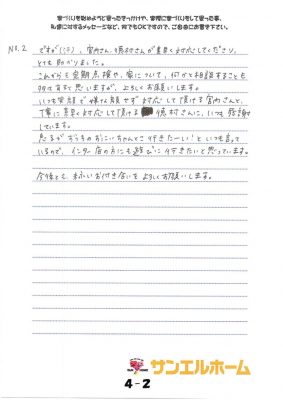 家づくりを始めようと思ったきっかけや、実際に家づくりをして思った事、
私達に対するメッセージなど、何でもOKですので、ご自由にお書き下さい。
No.2
ですが(汗)、宮内さん、徳村さんが素早く対応してくださり、
とても助かりました。
これからも定期点検や、家について、何かと相談することも
多々有ると思いますが、よろしくお願いします。
いつも笑顔で嫌な顔せず対応して頂ける宮内さんと、
丁寧に素早く対応して頂ける徳村さんに、いつも感謝
しています。
のおにいちゃんとこ行きたーい!といつも言って
いるので、インター店の方にも遊びに行きたいと思っています。
今後とも、末永いお付き合いをよろしくお願いします。
サンエルホーム
4-2